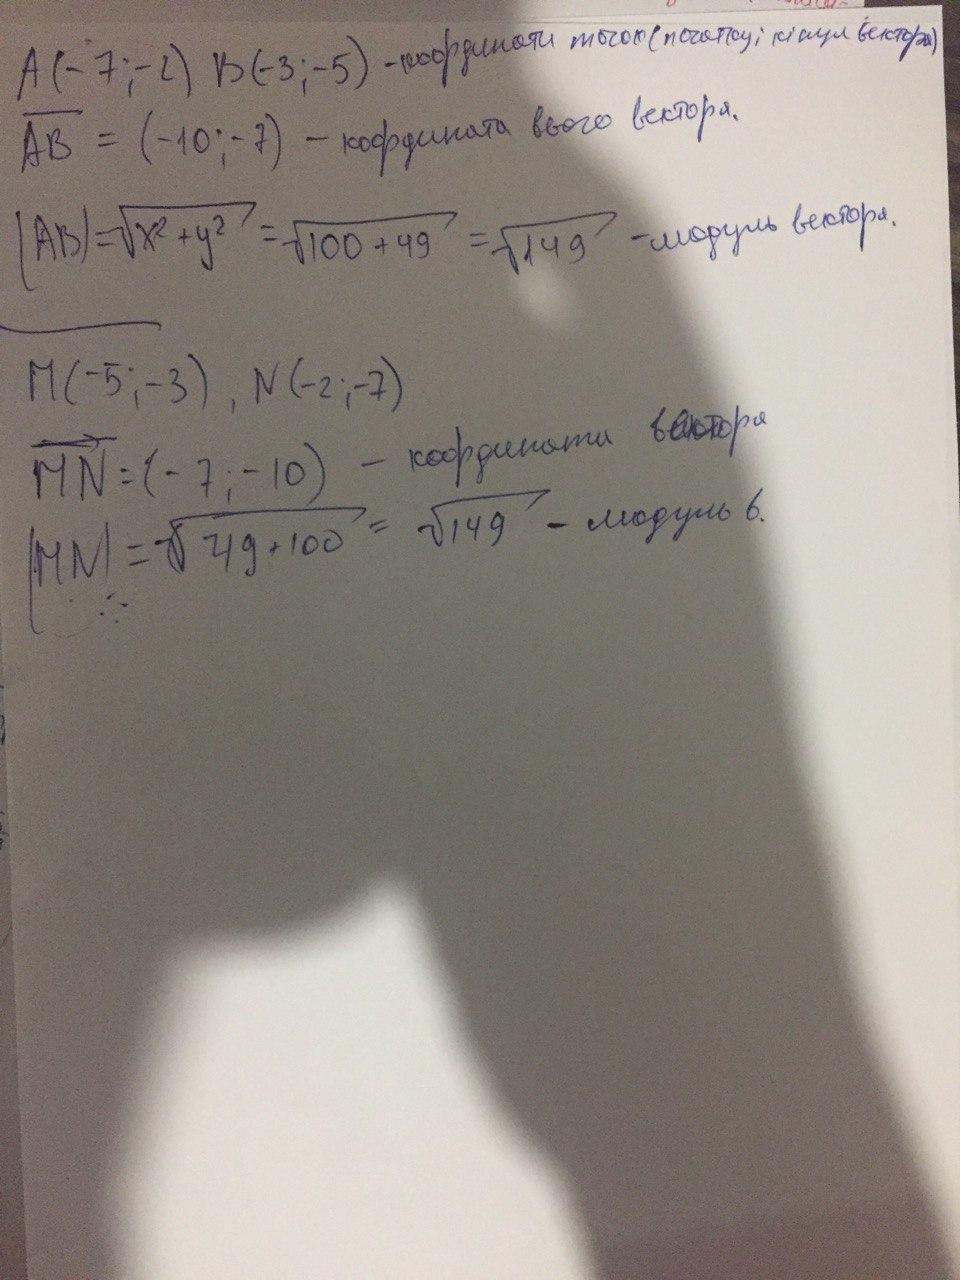 A(-7;-2) B(-3;-5) - координати точок (початку і кінця вектора)
AB = (-10;-7) - координата всього вектора.
|AB| = √x²+y² = √100+49 = √149 - модуль вектора.
M(-5;-3), N(-2;-7)
MN = (-7;-10) - координати вектора
|MN| = √49+100 = √149 - модуль в.